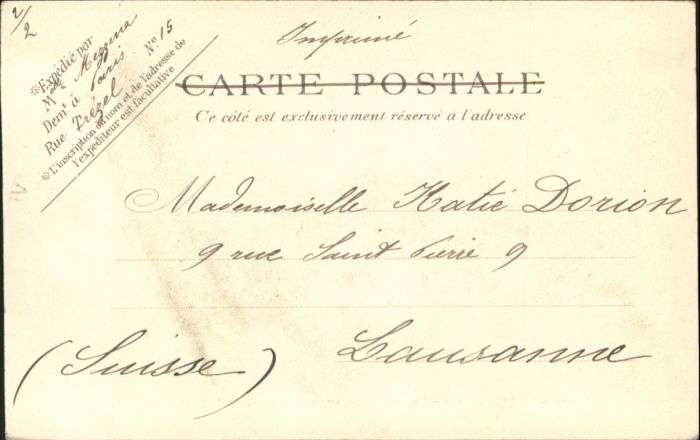 2/2
Expédié par
Mme Messina
Demt à Paris
Rue Trézel No 15
L'inscription du nom et de l'adresse de
l'expéditeur est facultative
Imprimé
CARTE POSTALE
Ce côté est exclusivement réservé a l'adresse
Mademoiselle Katie Dorion
9 rue Saint Pierre 9
Lausanne
(Suisse)